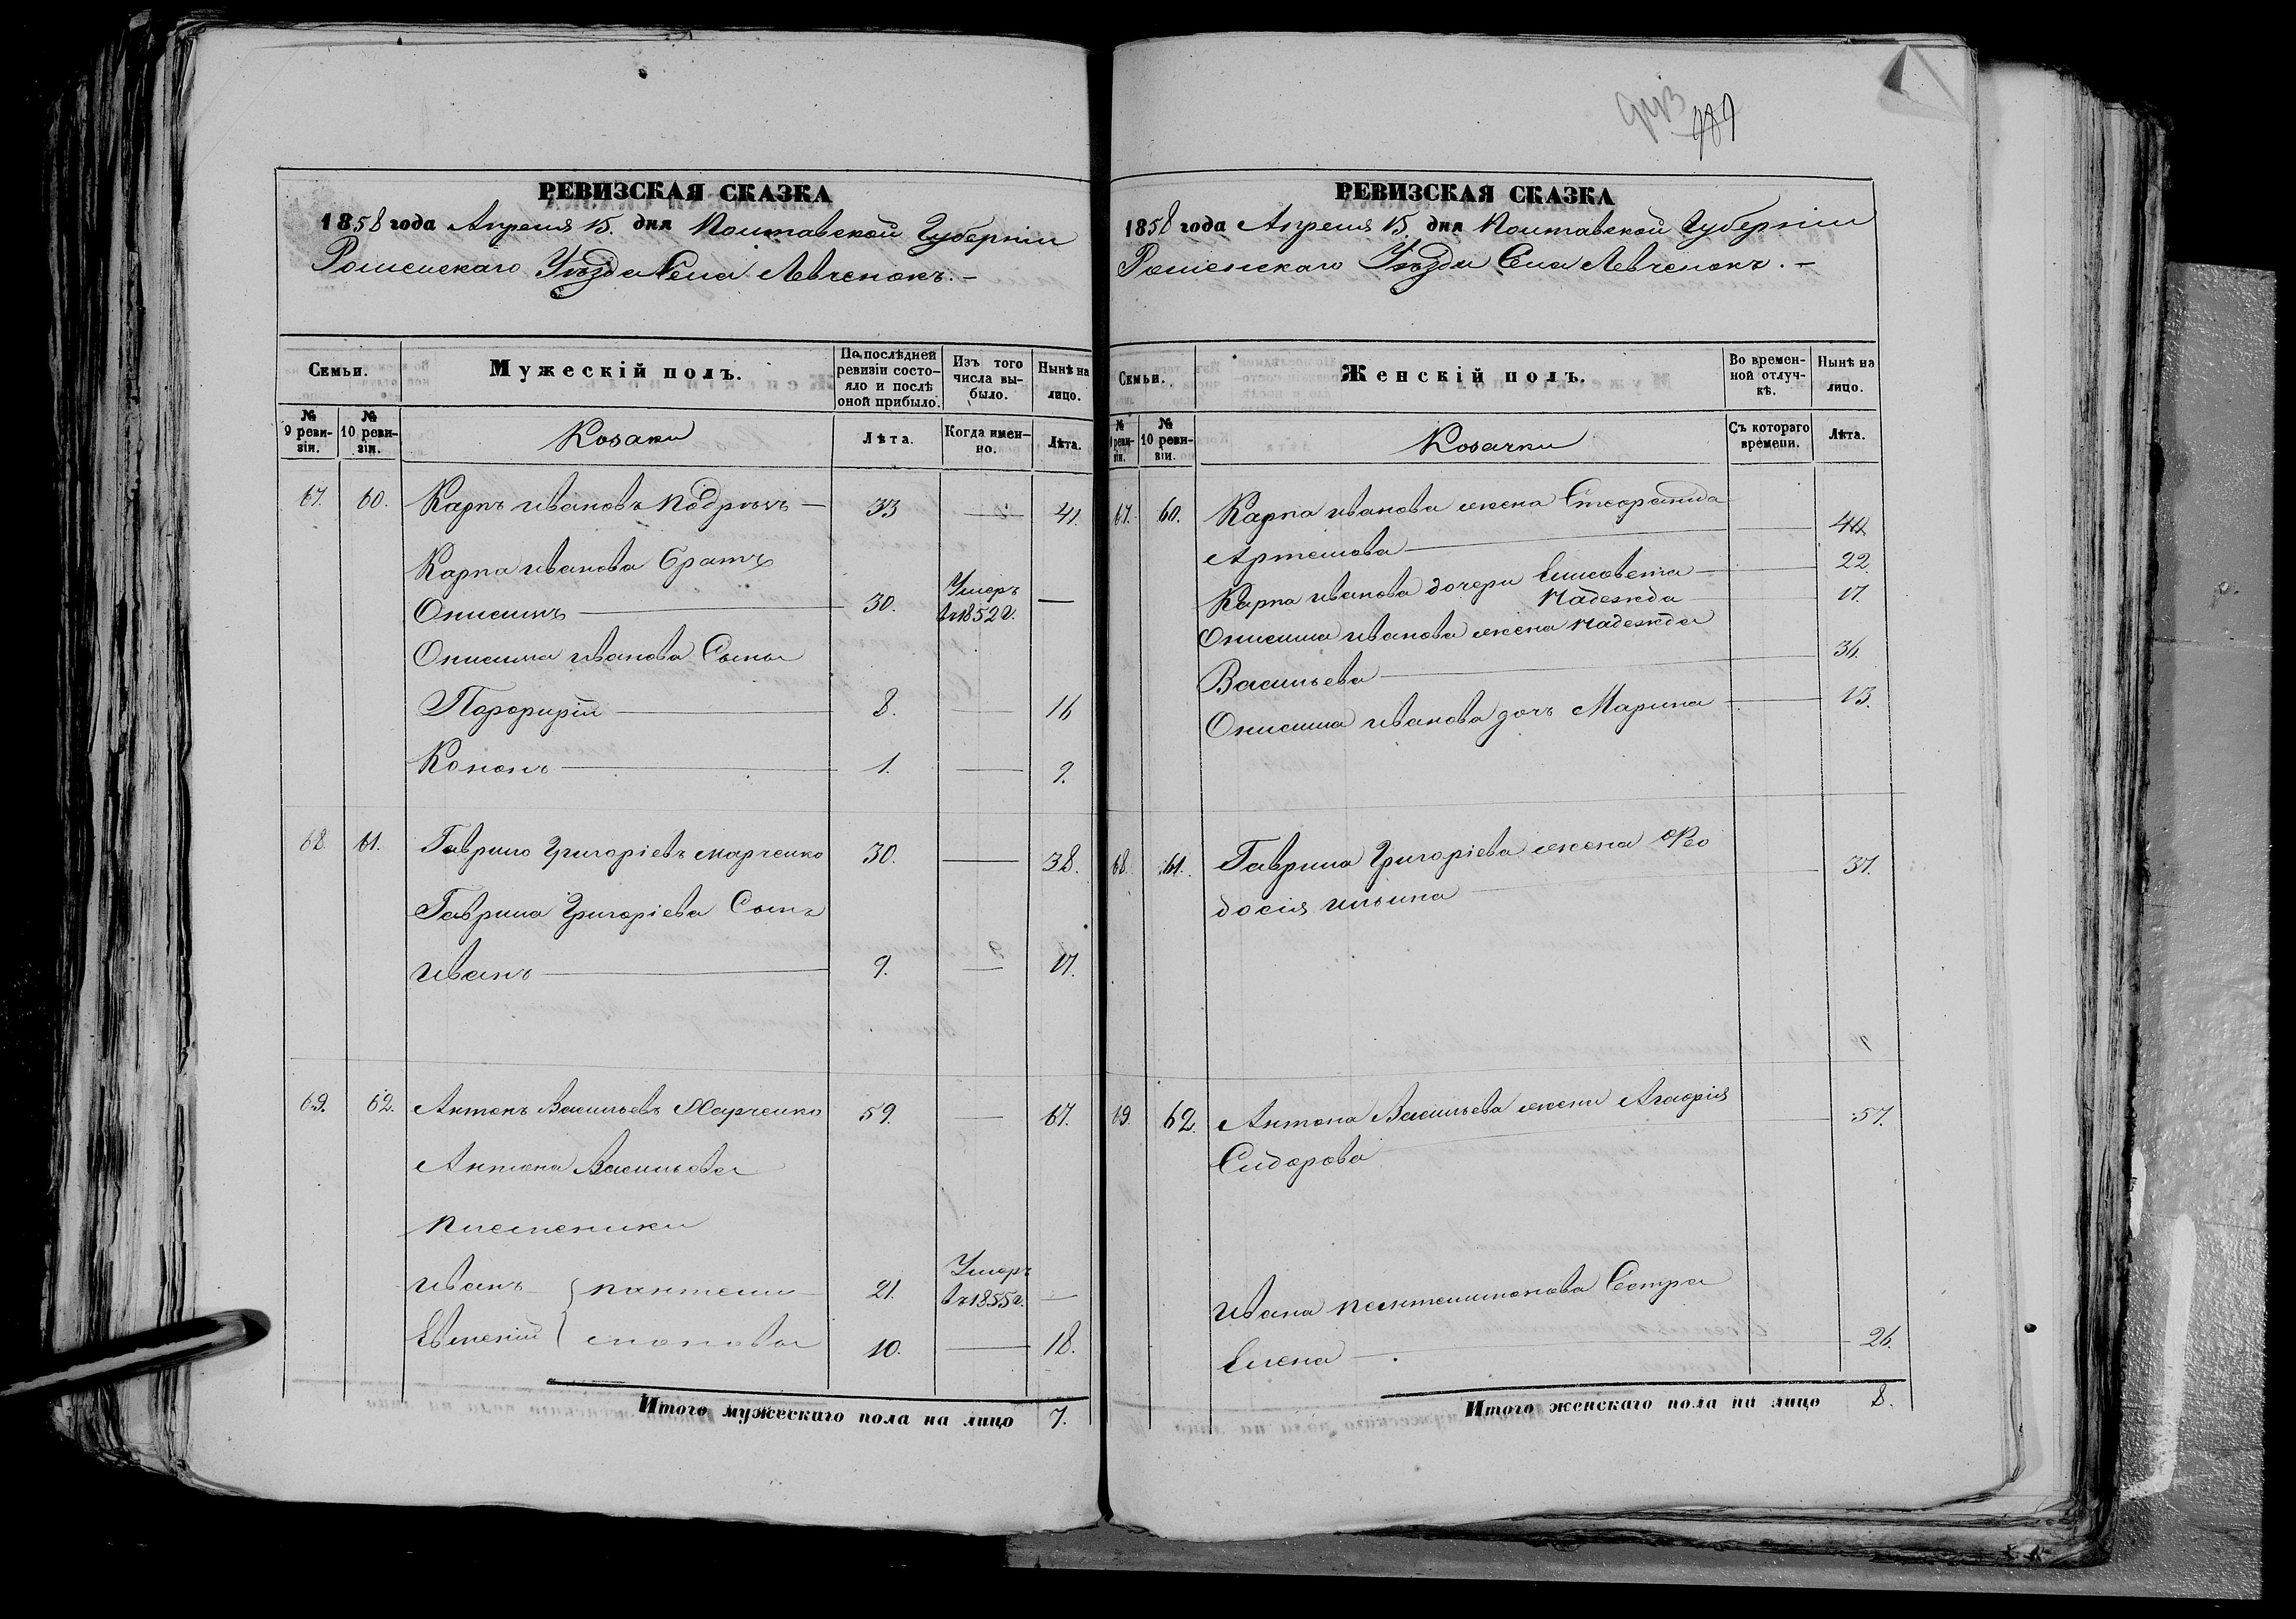 943
989
РЕВИЗСКАЯ СКАЗКА
1858 года Апреля 15. дня Полтавской Губерніи
Роменскаго Уѣзда Села Левченокъ. –
Семьи.
Мужескій полъ.
По послѣдней ревизіи состояло и послѣ оной прибыло.
Изъ того числа выбыло.
Нынѣ на лицо.
№ 9 ревизіи.
№ 10 ревизіи.
Козаки
Лѣта.
Когда именно.
Лѣта.
67. 60. Карпъ Ивановъ — 33 — 41.
Карпа Иванова братъ
Онисимъ — 30. Умеръ въ 1852 г. —
Онисима Иванова Сыны
Порфирій — 8. — 16
Кононъ — 1. — 9.
68. 61. Гаврило Григоріевъ Марченко 30. — 38.
Гаврила Григоріева Сынъ
Иванъ — 9. — 17.
69. 62. Антонъ Васильевъ Харченко 59. — 67.
Антона Васильева
племенники
Иванъ } Пантели 21. Умеръ въ 1855 г. —
Евменій } монова 10. — 18.
Итого мужескаго пола на лицо 7.
РЕВИЗСКАЯ СКАЗКА
1858 года Апреля 15. дня Полтавской Губерніи
Роменскаго Уѣзда Села Левченокъ. –
Семьи.
Женскій полъ.
Во временной отлучкѣ.
Нынѣ на лицо.
№ 9 ревизіи.
№ 10 ревизіи.
Козачки
Съ котораго времени.
Лѣта.
67. 60. Карпа Иванова жена Стефанида
Артемова — 40
Карпа Иванова дочери Елисавета — 22.
Надежда — 17.
Онисима Иванова жена Надежда
Васильева — 36.
Онисима Иванова дочь Марина — 13.
68. 61. Гаврила Григоріева жена Ѳео
досія Ильина — 37.
69. 62. Антона Васильева жена Агафія — 57.
Сидорова
Ивана Пантелимонова Сестра
Елена — 26.
Итого женскаго пола на лицо 8.